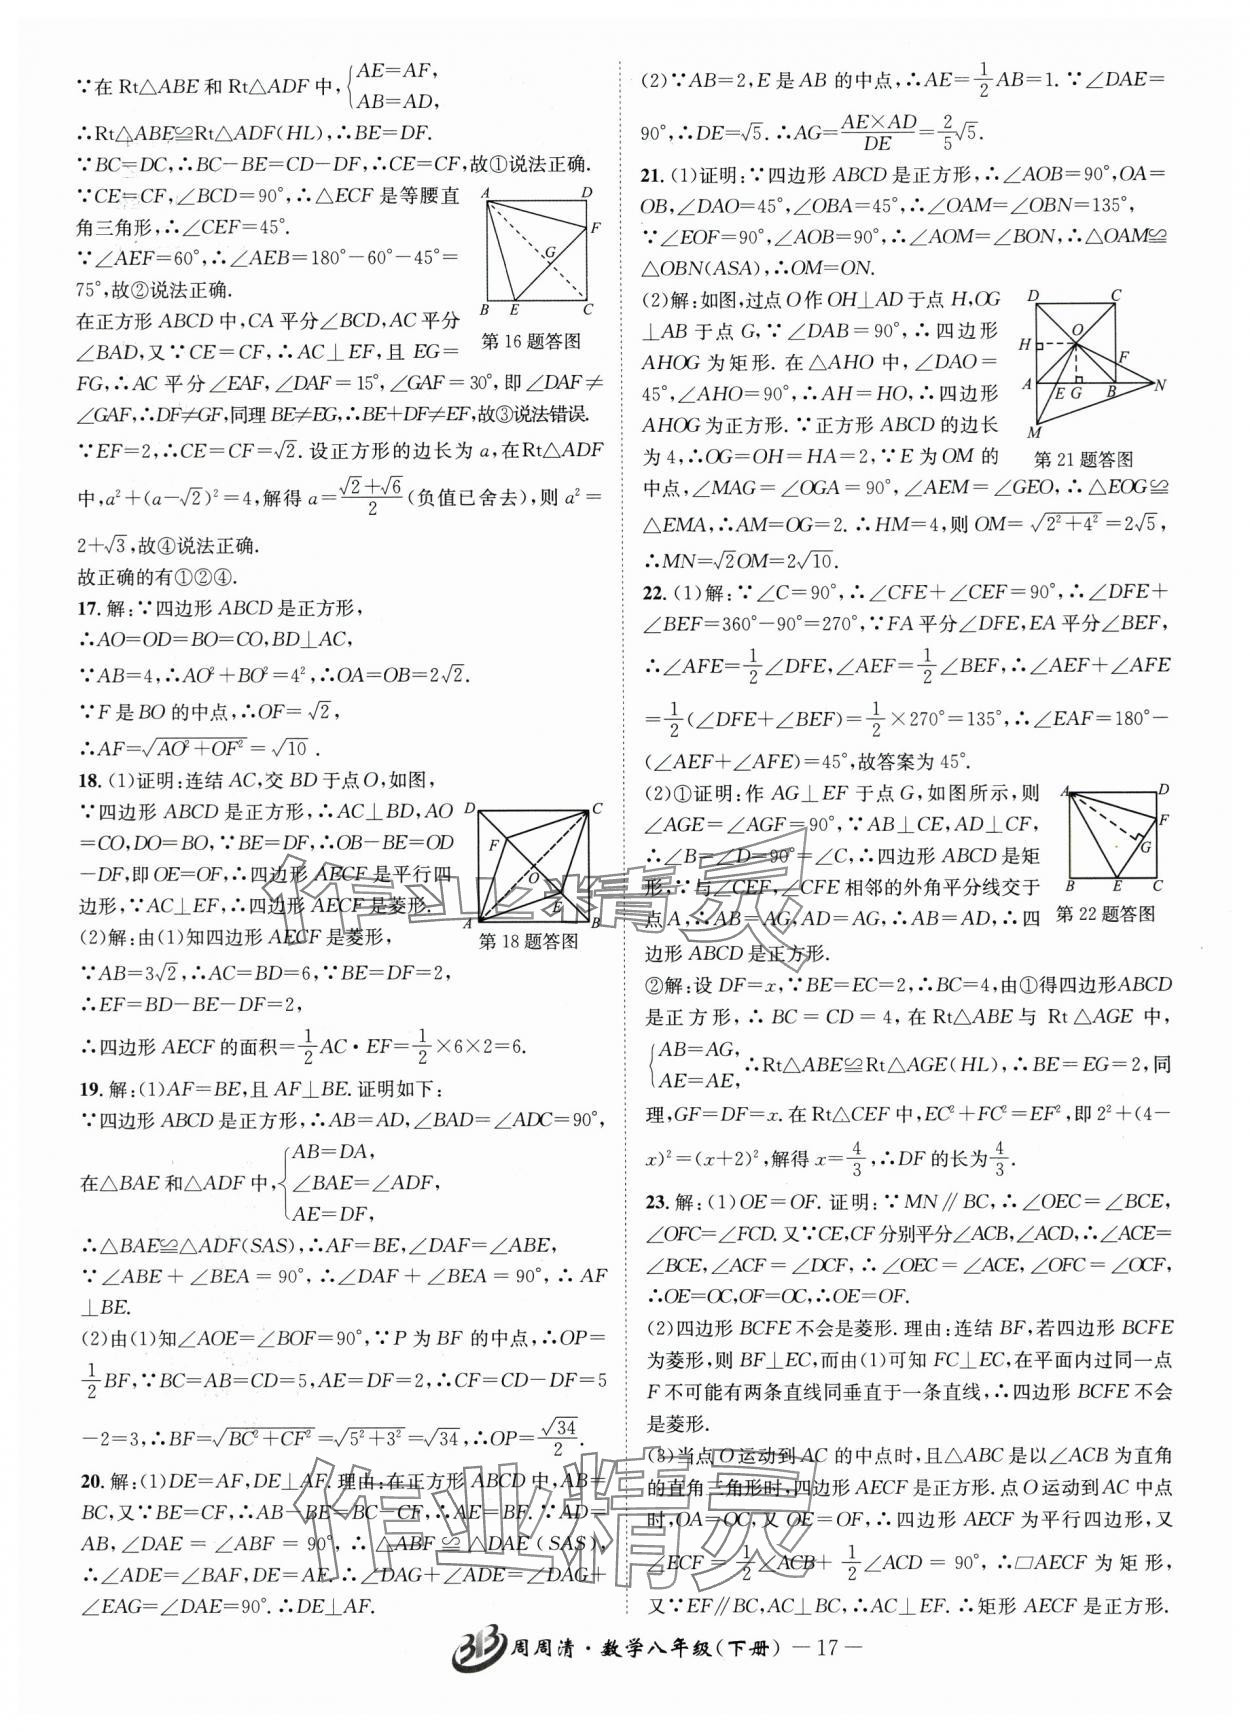 ∵在 Rt△ABE 和 Rt△ADF 中,{AE=AF, AB=AD,
∴Rt△ABE≌Rt△ADF(HL),∴BE=DF.
∵BC=DC,∴BC-BE=CD-DF,∴CE=CF,故①说法正确.
∵CE=CF,∠BCD=90°,∴△ECF 是等腰直
角三角形,∴∠CEF=45°.
∵∠AEF=60°,∴∠AEB=180°-60°-45°=
75°,故②说法正确.
在正方形 ABCD 中,CA 平分∠BCD,AC 平分
∠BAD,又∵CE=CF,∴AC⊥EF,且 EG=
FG,∴AC 平分∠EAF,∠DAF=15°,∠GAF=30°,即∠DAF≠
∠GAF,∴DF≠GF,同理 BE≠EG,∴BE+DF≠EF,故③说法错误.
∵EF=2,∴CE=CF=√2. 设正方形的边长为 a,在Rt△ADF
中,a²+(a-√2)²=4,解得 a=(√2+√6)/2(负值已舍去),则 a²=
2+√3,故④说法正确.
故正确的有①②④.
A D F G B E C
第 16 题答图
17. 解:∵四边形 ABCD 是正方形,
∴AO=OD=BO=CO,BD⊥AC,
∵AB=4,∴AO²+BO²=4²,∴OA=OB=2√2.
∵F 是 BO 的中点,∴OF=√2,
∴AF=√(AO²+OF²)=√10.
18. (1)证明:连结 AC,交 BD 于点 O,如图,
∵四边形 ABCD 是正方形,∴AC⊥BD,AO
=CO,DO=BO,∵BE=DF,∴OB-BE=OD
-DF,即 OE=OF,∴四边形 AECF 是平行四
边形,∵AC⊥EF,∴四边形 AECF 是菱形.
(2)解:由(1)知四边形 AECF 是菱形,
∵AB=3√2,∴AC=BD=6,∵BE=DF=2,
∴EF=BD-BE-DF=2,
∴四边形 AECF 的面积=1/2 AC·EF=1/2×6×2=6.
D C F O E A B
第 18 题答图
19. 解:(1)AF=BE,且 AF⊥BE. 证明如下:
∵四边形 ABCD 是正方形,∴AB=AD,∠BAD=∠ADC=90°,
在△BAE 和△ADF 中,{AB=DA, ∠BAE=∠ADF, AE=DF,
∴△BAE≌△ADF(SAS),∴AF=BE,∠DAF=∠ABE,
∵∠ABE+∠BEA=90°,∴∠DAF+∠BEA=90°,∴AF
⊥BE.
(2)由(1)知∠AOE=∠BOF=90°,∵P 为 BF 的中点,∴OP=
1/2 BF,∵BC=AB=CD=5,AE=DF=2,∴CF=CD-DF=5
-2=3,∴BF=√(BC²+CF²)=√(5²+3²)=√34,∴OP=√34/2.
20. 解:(1)DE=AF,DE⊥AF. 理由:在正方形 ABCD 中,AB=
BC,又∵BE=CF,∴AB-BE=BC-CF,∴AE=BF. ∵AD=
AB,∠DAE=∠ABF=90°,∴△ABF≌△DAE(SAS),
∴∠ADE=∠BAF,DE=AE. ∴∠DAG+∠ADE=∠DAG+
∠EAG=∠DAE=90°. ∴DE⊥AF.
(2)∵AB=2,E 是 AB 的中点,∴AE=1/2 AB=1. ∵∠DAE=
90°,∴DE=√5. ∴AG=(AE×AD)/DE=2/5√5.
21. (1)证明:∵四边形 ABCD 是正方形,∴∠AOB=90°,OA=
OB,∠DAO=45°,∠OBA=45°,∴∠OAM=∠OBN=135°,
∵∠EOF=90°,∠AOB=90°,∴∠AOM=∠BON,∴△OAM≌
△OBN(ASA),∴OM=ON.
(2)解:如图,过点 O 作 OH⊥AD 于点 H,OG
⊥AB 于点 G,∵∠DAB=90°,∴四边形
AHOG 为矩形. 在△AHO 中,∠DAO=
45°,∠AHO=90°,∴AH=HO,∴四边形
AHOG 为正方形. ∵正方形 ABCD 的边长
为 4,∴OG=OH=HA=2,∵E 为 OM 的
中点,∠MAG=∠OGA=90°,∠AEM=∠GEO,∴△EOG≌
△EMA,∴AM=OG=2. ∴HM=4,则 OM=√(2²+4²)=2√5,
∴MN=√2OM=2√10.
D C O H F A E G B N M
第 21 题答图
22. (1)解:∵∠C=90°,∴∠CFE+∠CEF=90°,∴∠DFE+
∠BEF=360°-90°=270°,∵FA 平分∠DFE,EA 平分∠BEF,
∴∠AFE=1/2∠DFE,∠AEF=1/2∠BEF,∴∠AEF+∠AFE
=1/2(∠DFE+∠BEF)=1/2×270°=135°,∴∠EAF=180°-
(∠AEF+∠AFE)=45°,故答案为 45°.
(2)①证明:作 AG⊥EF 于点 G,如图所示,则
∠AGE=∠AGF=90°,∵AB⊥CE,AD⊥CF,
∴∠B=∠D=90°=∠C,∴四边形 ABCD 是矩
形,∵与∠CEF,∠CFE 相邻的外角平分线交于
点 A,∴AB=AG,AD=AG,∴AB=AD,∴四
边形 ABCD 是正方形.
A D F G B E C
第 22 题答图
②解:设 DF=x,∵BE=EC=2,∴BC=4,由①得四边形ABCD
是正方形,∴BC=CD=4,在 Rt△ABE 与 Rt△AGE 中,
{AB=AG, AE=AE,∴Rt△ABE≌Rt△AGE(HL),∴BE=EG=2,同
理,GF=DF=x. 在 Rt△CEF 中,EC²+FC²=EF²,即 2²+(4-
x)²=(x+2)²,解得 x=4/3,∴DF 的长为4/3.
23. 解:(1)OE=OF. 证明:∵MN∥BC,∴∠OEC=∠BCE,
∠OFC=∠FCD. 又∵CE,CF 分别平分∠ACB,∠ACD,∴∠ACE=
∠BCE,∠ACF=∠DCF,∴∠OEC=∠ACE,∠OFC=∠OCF,
∴OE=OC,OF=OC,∴OE=OF.
(2)四边形 BCFE 不会是菱形. 理由:连结 BF,若四边形 BCFE
为菱形,则 BF⊥EC,而由(1)可知 FC⊥EC,在平面内过同一点
F 不可能有两条直线同垂直于一条直线,∴四边形 BCFE 不会
是菱形.
(3)当点 O 运动到 AC 的中点时,且△ABC 是以∠ACB 为直角
的直角三角形时,四边形 AECF 是正方形. 点 O 运动到 AC 中点
时,OA=OC,又 OE=OF,∴四边形 AECF 为平行四边形,又
∠ECF=1/2∠ACB+1/2∠ACD=90°,∴□AECF 为矩形,
又∵EF∥BC,AC⊥BC,∴AC⊥EF. ∴矩形 AECF 是正方形.
作业精灵
作业精灵
313 周周清·数学八年级(下册) —17—